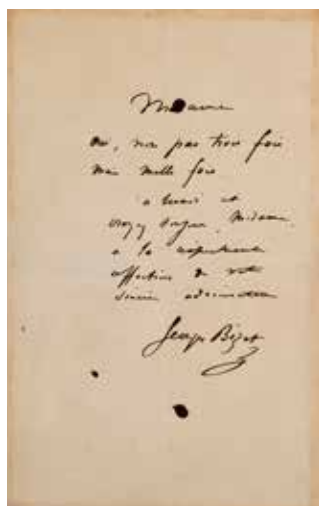 Madame
Oui, non pas trois fois
mais mille fois
à Mardi et
croyez toujours, Madame,
à la respectueuse
affection de votre
sincère admirateur
Georges Bizet